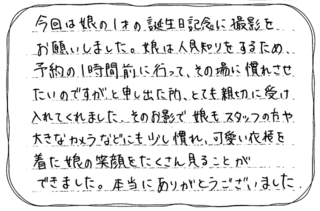 今回は娘の1才の誕生日記念に撮影を
お願いしました。娘は人見知りをするため、
予約の1時間前に行って、その場に慣れさせ
たいのですが、と申し出た所、とても親切に受け
入れてくれました。そのお影で娘もスタッフの方や
大きなカメラなどにも少し慣れ、可愛い衣装を
着た娘の笑顔をたくさん見ることが
できました。本当にありがとうございました。